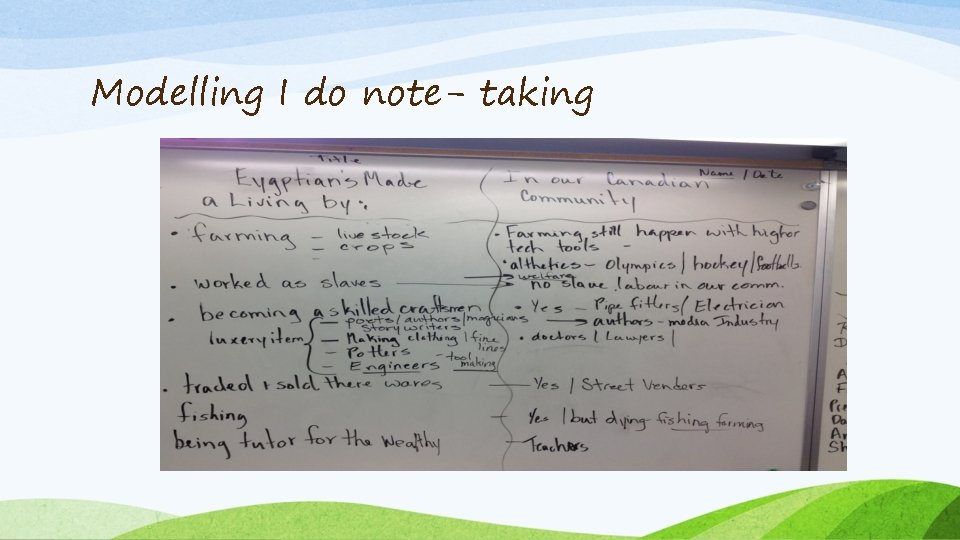 Modelling I do note- taking
Title
Eygptian's Made
a Living by:
• farming – live stock
– crops
–
• worked as slaves
• becoming a skilled craftsmen
luxery item – poets/authors/magicians
story writers
– Making clothing / fine
lines
– Potters
– Engineers – tool
making
• traded + sold there wares
fishing
being tutor for the wealthy
Name / Date
In our Canadian
Community
• Farming still happen with higher
tech tools –
• althetics – Olympics / hockey / footballs
welfare
no slave labour in our comm.
• Yes – Pipe fitters / Electricion
authors – media Industry
• doctors / Lawyers /
Yes / Street Venders
Yes / but dying fishing farming
Teachers
D
A
F
Pre
Da
Ar
Sh